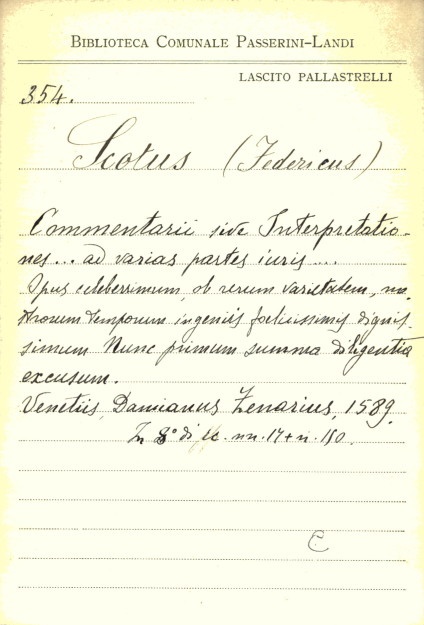 BIBLIOTECA COMUNALE PASSERINI-LANDI
LASCITO PALLASTRELLI
354.
Scotus (Federicus)
Commentarii sive Interpretatio-
nes... ad varias partes iuris...
Opus celeberrimum, ob rerum varietatem, no
strorum temporum ingeniis foelicissimis dignis-
simum Nunc primum summa diligentia
excusum.
Venetiis, Damianus Zenarius, 1589.
8° di cc. nn. 14+n. 150.
C